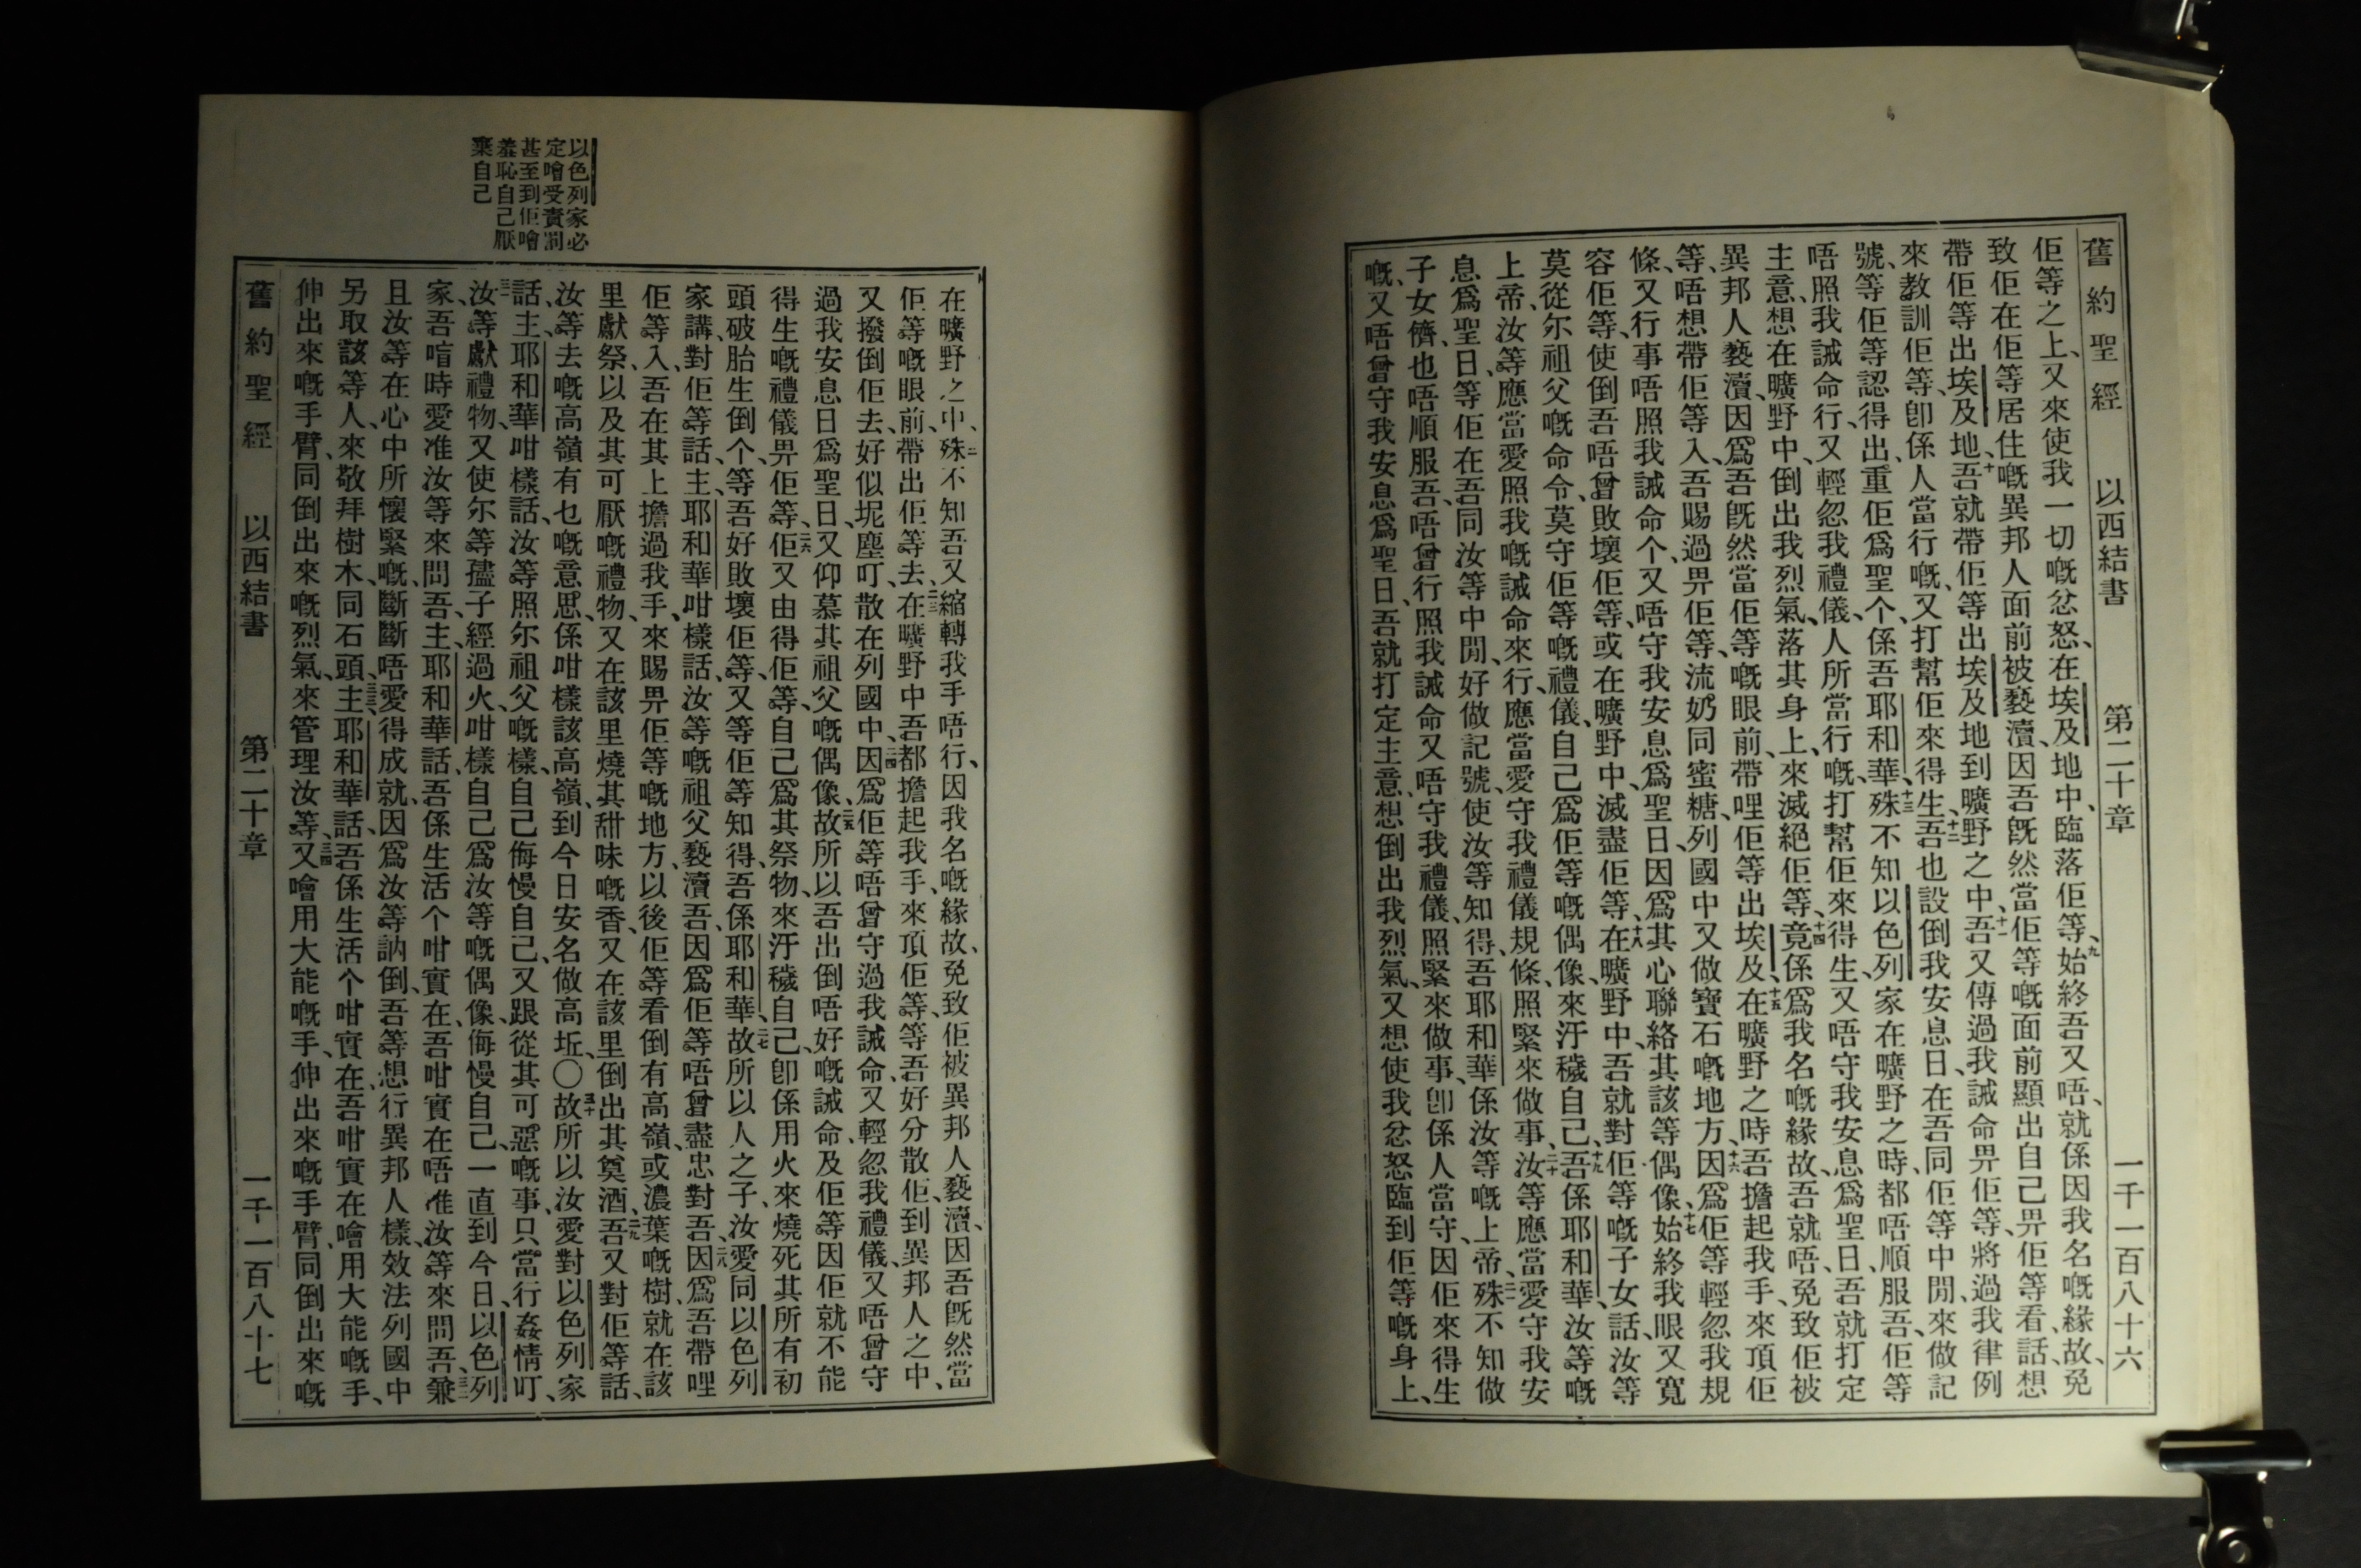 舊約聖經 以西結書 第二十章 一千一百八十六
佢等之上、又來使我一切嘅忿怒、在埃及地中、臨落佢等、九始終吾又唔、就係因我名嘅緣故、免
致佢在佢等居住嘅異邦人面前被褻瀆、因吾旣然當佢等嘅面前顯出自己畀佢等看、話、想
帶佢等出埃及地、十吾就帶佢等出埃及地到曠野之中、十一吾又傳過我誡命畀佢等、將過我律例
來教訓佢等、卽係人當行嘅、又打幫佢來得生、十二吾也設倒我安息日、在吾同佢等中間、來做記
號、等佢等認得出、重佢爲聖个、係吾耶和華、十三殊不知以色列家在曠野之時、都唔順服吾、佢等
唔照我誡命行、又輕忽我禮儀、人所當行嘅、打幫佢來得生、又唔守我安息爲聖日、吾就打定
主意、想在曠野中、倒出我烈氣、落其身上、來滅絕佢等、十四竟係爲我名嘅緣故、吾就唔、免致佢被
異邦人褻瀆、因爲吾旣然當佢等嘅眼前、帶哩佢等出埃及、十五在曠野之時、吾擔起我手、來項佢
等、唔想帶佢等入、吾賜過畀佢等、流奶同蜜糖、列國中又做寶石嘅地方、十六因爲佢等輕忽我規
條、又行事唔照我誡命个、又唔守我安息爲聖日、因爲其心聯絡其該等偶像、十七始終我眼又寬
容佢等、使倒吾唔曾敗壞佢等、或在曠野中、滅盡佢等、十八在曠野中、吾就對佢等嘅子女話、汝等
莫從尔祖父嘅命令、莫守佢等嘅禮儀、自己爲佢等嘅偶像、來汙穢自己、十九吾係耶和華、汝等嘅
上帝、汝等應當愛照我嘅誡命來行、應當愛守我禮儀規條、照緊來做事、二十汝等應當愛守我安
息爲聖日、等佢在吾同汝等中間、好做記號、使汝等知得、吾耶和華係汝等嘅上帝、二一殊不知做
子女儕、也唔順服吾、唔曾行照我誡命、又唔守我禮儀、照緊來做事、卽係人當守、因佢來得生
嘅、又唔曾守我安息爲聖日、吾就打定主意、想倒出我烈氣、又想使我忿怒臨到佢等嘅身上、
以色列家必
定噲受責罰
甚至到佢噲
羞恥自己厭
棄自己
在曠野之中、二二殊不知吾又縮轉我手唔行、因我名嘅緣故、免致佢被異邦人褻瀆、因吾旣然當
佢等嘅眼前、帶出佢等去、二三在曠野中、吾都擔起我手、來項佢等、等吾好分散佢、到異邦人之中、
又撥倒佢去、好似坭塵叮、散在列國中、二四因爲佢等唔曾守過我誡命、又輕忽我禮儀、又唔曾守
過我安息日爲聖日、又仰慕其祖父嘅偶像、二五故所以吾出倒唔好嘅誡命、及佢等因佢就不能
得生嘅禮儀畀佢等、二六佢又由得佢等、自己爲其祭物、來汙穢自己、卽係用火來燒死其所有初
頭破胎生倒个、等吾好敗壞佢等、又等佢等知得、吾係耶和華、二七故所以人之子、汝愛同以色列
家講、對佢等話、主耶和華咁樣話、汝等嘅祖父褻瀆吾、因爲佢等唔曾盡忠對吾、二八因爲吾帶哩
佢等入、吾在其上擔過我手、來賜畀佢等嘅地方、以後佢等看倒有高嶺、或濃葉嘅樹、就在該
里獻祭、以及其可厭嘅禮物、又在該里燒其甜味嘅香、又在該里倒出其奠酒、二九吾又對佢等話、
汝等去嘅高嶺有乜嘅意思、係咁樣該高嶺、到今日安名做高坵、〇三十故所以汝愛對以色列家
話、主耶和華咁樣話、汝等照尔祖父嘅樣、自己侮慢自己、又跟從其可惡嘅事、只當行姦情叮、
三一汝等獻禮物、又使尔等孻子經過火、咁樣自己爲汝等嘅偶像、侮慢自己、一直到今日、以色列
家、吾喑時愛准汝等來問吾、主耶和華話、吾係生活个咁實在、吾咁實在唔准汝等來問吾、三二兼
且汝等在心中所懷緊嘅、斷斷唔愛得成就、因爲汝等訥倒、吾等想行異邦人樣、效法列國中
另取該等人、來敬拜樹木、同石頭、三三主耶和華話、吾係生活个咁實在、吾咁實在噲用大能嘅手、
伸出來嘅手臂、同倒出來嘅烈氣、來管理汝等、三四又噲用大能嘅手、伸出來嘅手臂、同倒出來嘅
舊約聖經 以西結書 第二十章 一千一百八十七